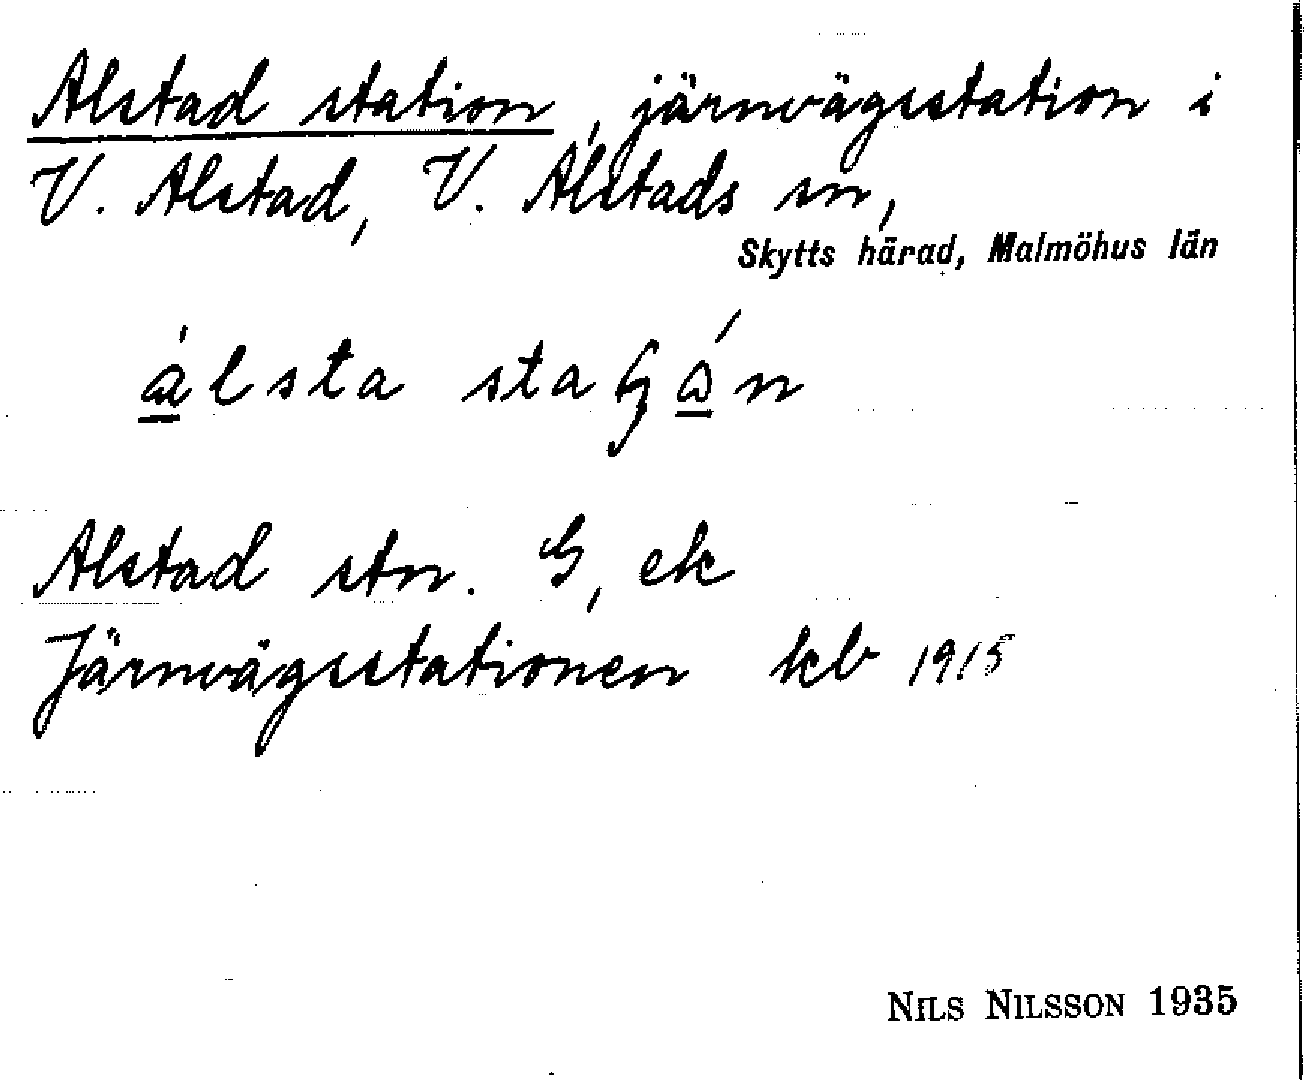 Alstad station, järnvägsstation i
V. Alstad, V. Alstads sn,
Skytts härad, Malmöhus län
álsta
Alstad stn. G, ek
Järnvägsstationen hcb 1915
NILS NILSSON 1935